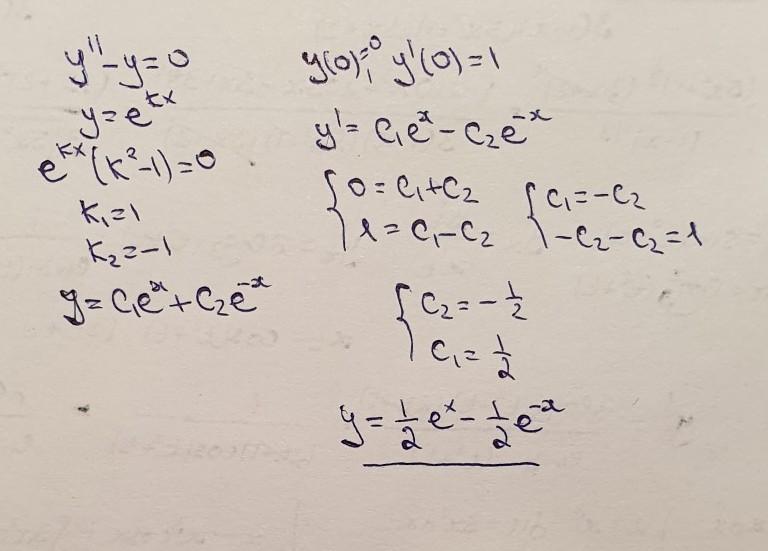 y''-y=0
y=e^{kx}
e^{kx}(k²-1)=0
k₁=1
k₂=-1
y=C₁e^x+C₂e^{-x}
y(0)=0, y'(0)=1
y'=C₁e^x-C₂e^{-x}
{0=C₁+C₂ {C₁=-C₂
1=C₁-C₂ -C₂-C₂=1
{C₂=-1/2
C₁=1/2
y=1/2 e^x-1/2 e^{-x}